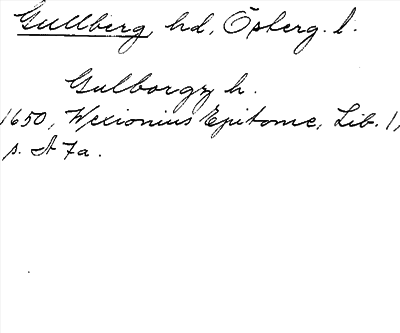 Gullberg, hd, Ösberg. l.
Gulborgz h.
1650, Wexionius Epitome, Lib. 1,
s. A 7a.